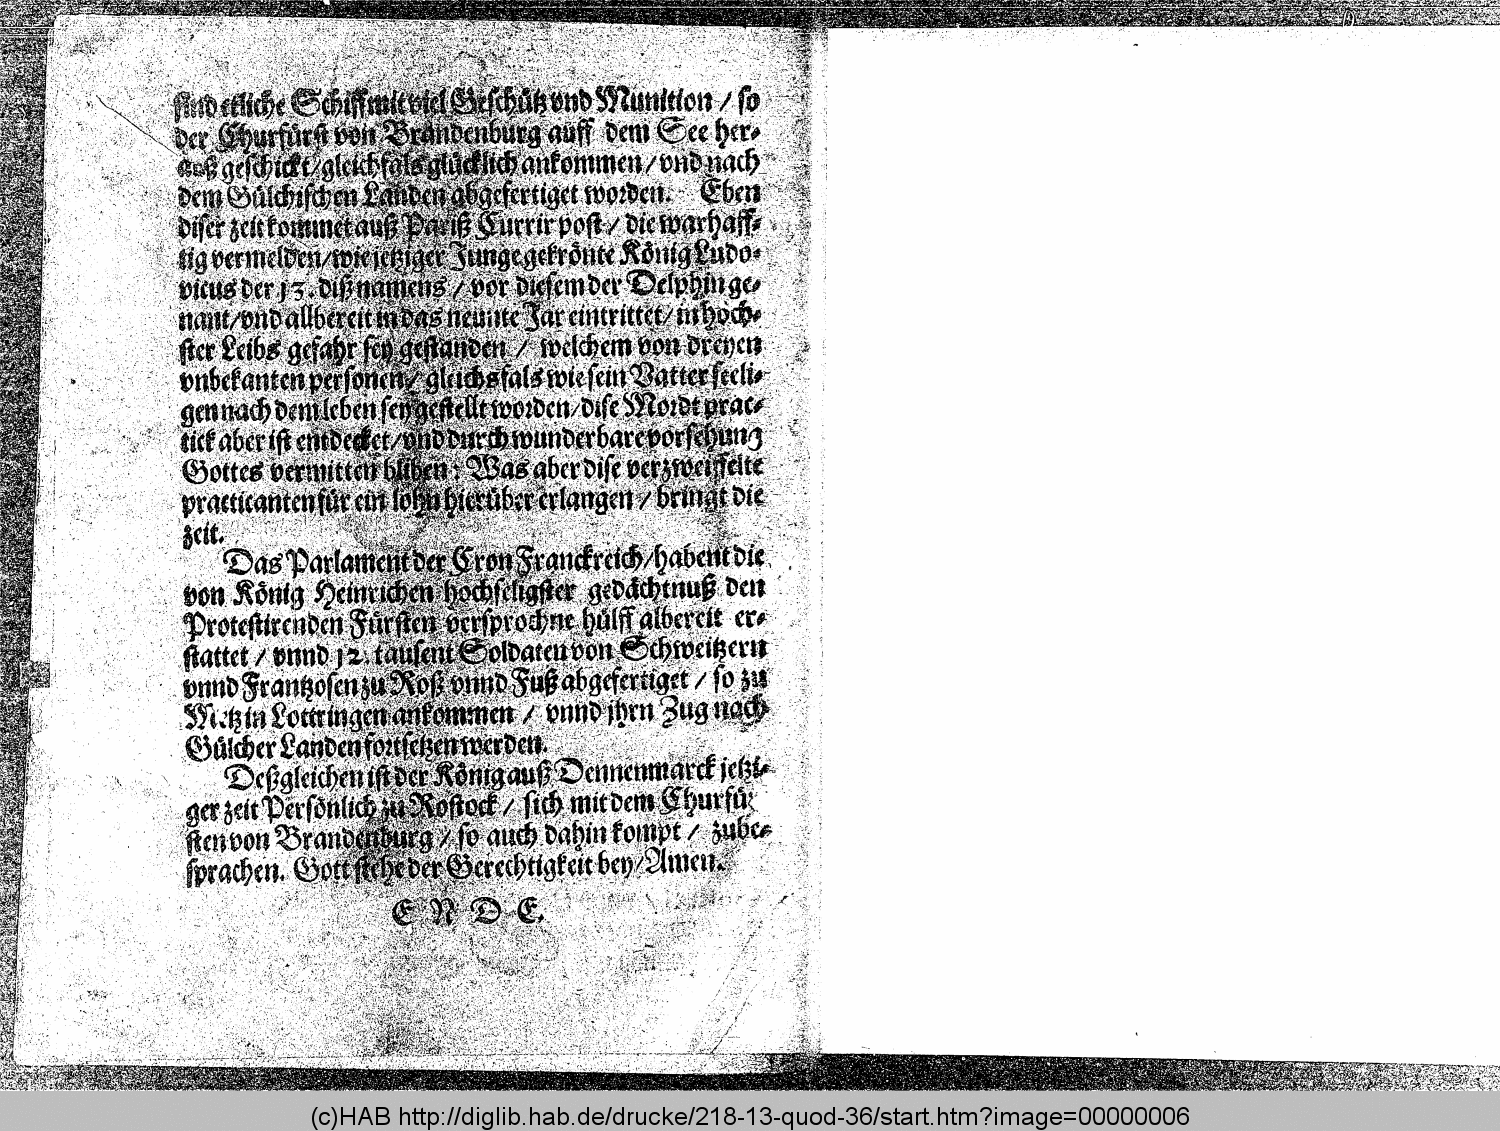 sind etliche Schiff mit viel Geschütz vnd Munition / so
der Churfürst von Brandenburg auff dem See her-
auß geschickt / gleichfals glücklich ankommen / vnd nach
dem Gülchischen Landen abgefertiget worden. Eben
diser zeit kommet auß Pariß Currir post / die warhaff-
tig vermelden / wie jetziger Junge gekrönte König Ludo-
vicus der 13. diß namens / vor diesem der Delphin ge-
nant / vnd allbereit in das neunte Jar eintrittet / in höch-
ster Leibs gefahr sey gestanden / welchem von dreyen
vnbekanten personen / gleichsfals wie sein Vatter seeli-
gen nach dem leben sey gestellt worden / dise Mordt prac-
tick aber ist entdecket / vnd durch wunderbare vorsehung
Gottes vermitten bliben: Was aber dise verzweiffelte
practicanten für ein lohn hierüber erlangen / bringt die
zeit.
Das Parlament der Cron Franckreich / habent die
von König Heinrichen hochseligster gedächtnuß den
Protestirenden Fürsten versprochne hülff albereit er-
stattet / vnnd 12. tausent Soldaten von Schweitzern
vnnd Frantzosen zu Roß vnnd Fuß abgefertiget / so zu
Metz in Lottringen ankommen / vnnd jhrn Zug nach
Gülcher Landen fortsetzen werden.
Deßgleichen ist der König auß Dennenmarck jetzi-
ger zeit Persönlich zu Rostock / sich mit dem Churfür
sten von Brandenburg / so auch dahin kompt / zube-
sprachen. Gott stehe der Gerechtigkeit bey / Amen.
E N D E.
(c)HAB http://diglib.hab.de/drucke/218-13-quod-36/start.htm?image=00000006